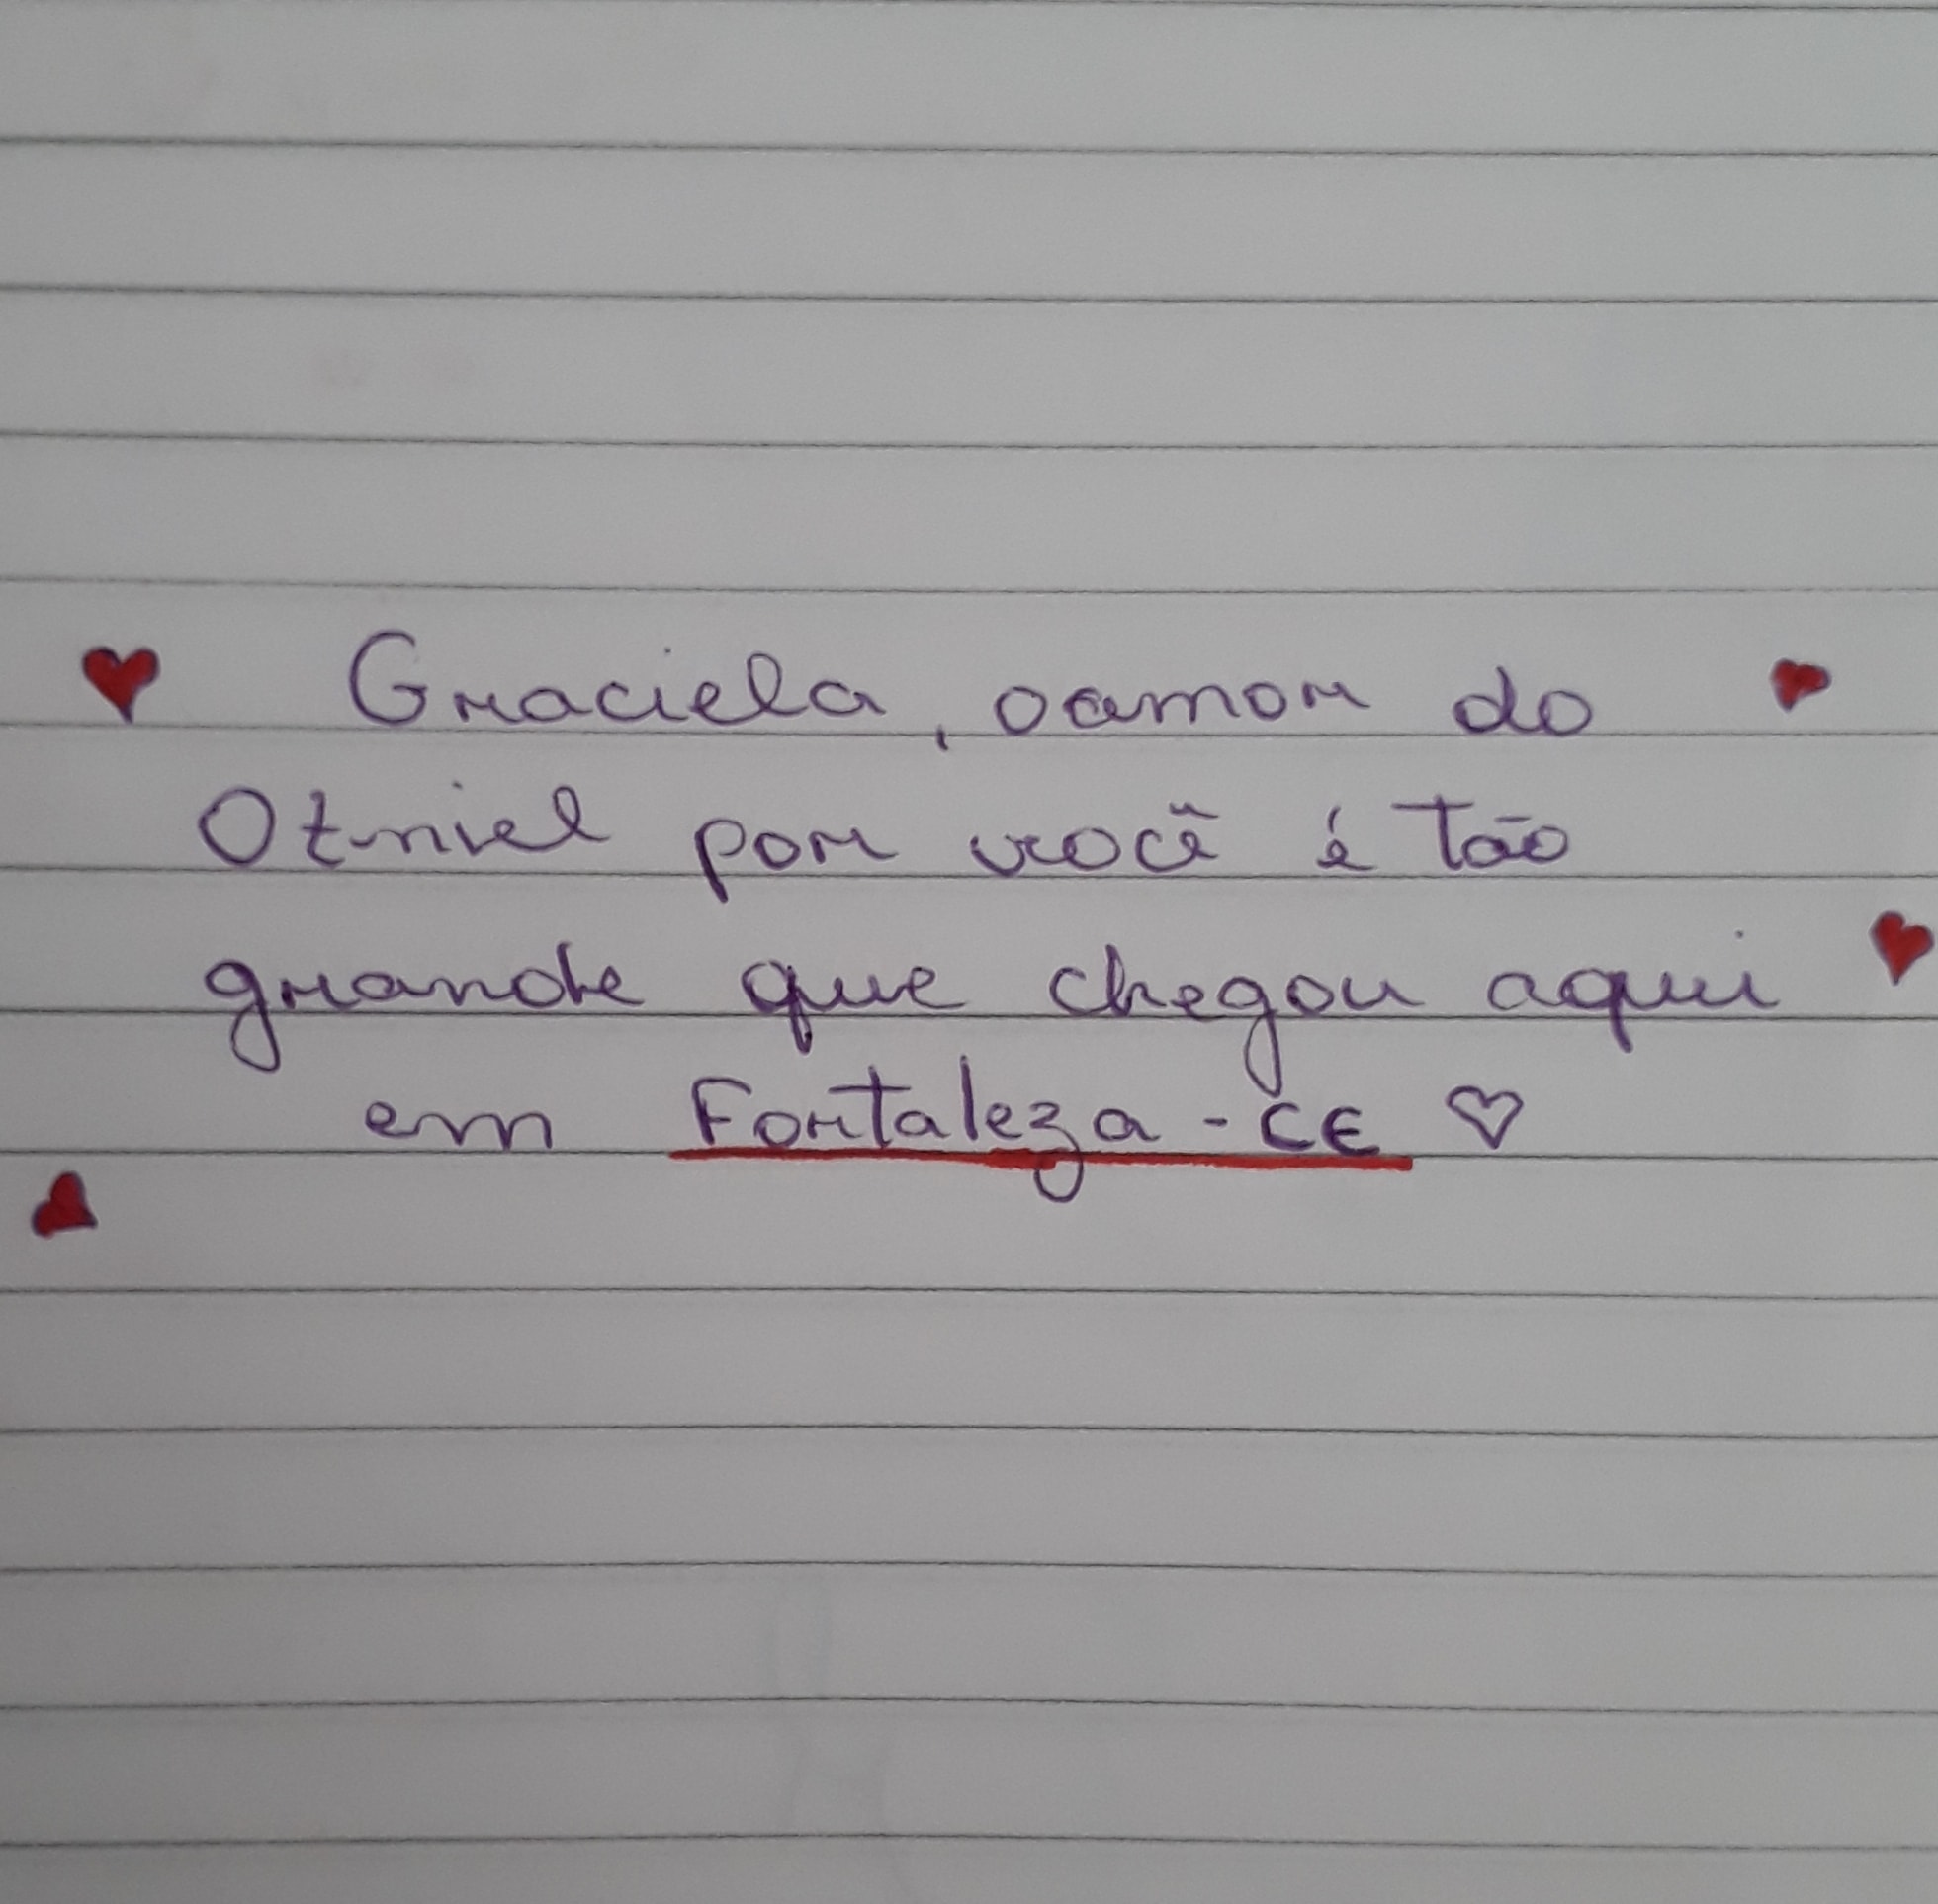 Graciela, o amor do
Otniel por você é tão
grande que chegou aqui
em Fortaleza - CE ♡